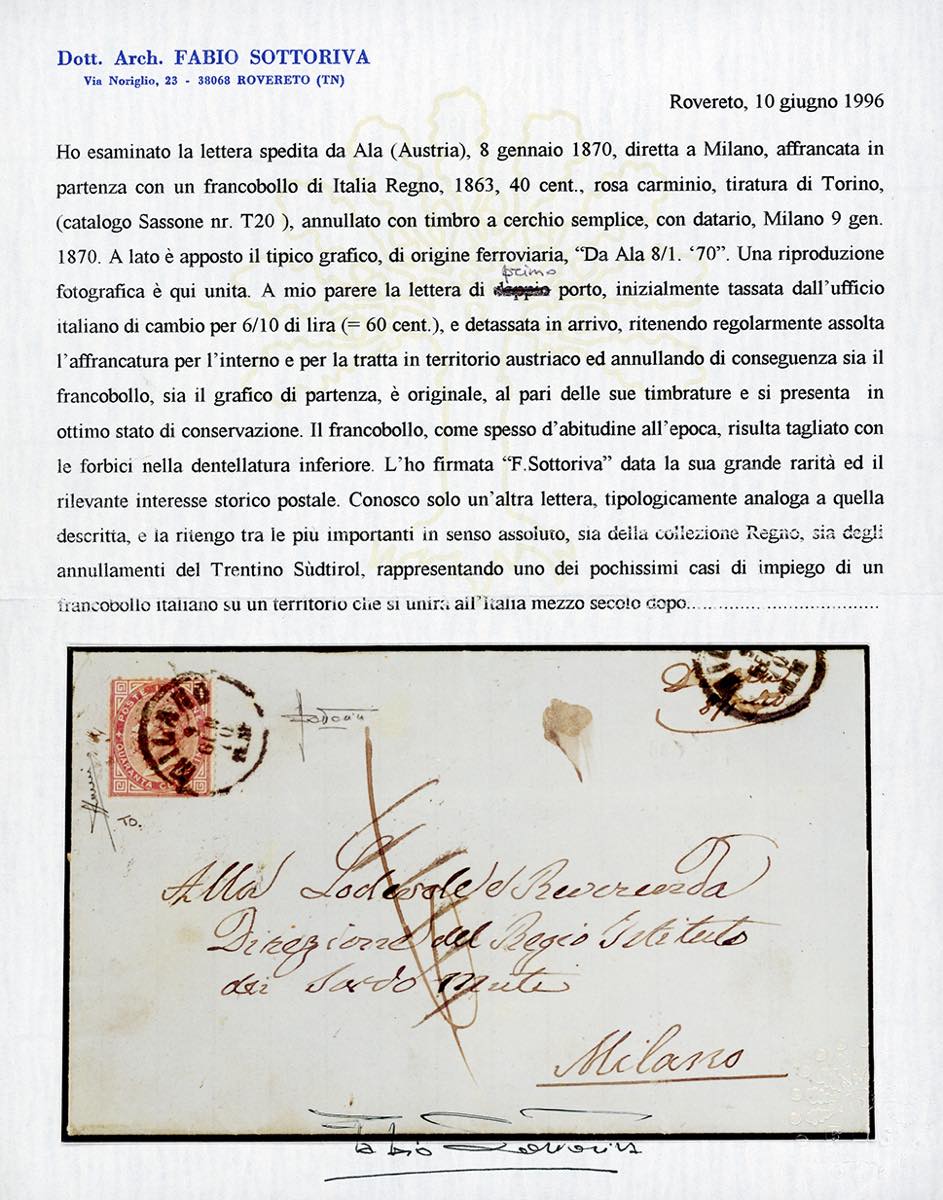 Dott. Arch. FABIO SOTTORIVA
Via Noriglio, 23 - 38068 ROVERETO (TN)
Rovereto, 10 giugno 1996
Ho esaminato la lettera spedita da Ala (Austria), 8 gennaio 1870, diretta a Milano, affrancata in
partenza con un francobollo di Italia Regno, 1863, 40 cent., rosa carminio, tiratura di Torino,
(catalogo Sassone nr. T20 ), annullato con timbro a cerchio semplice, con datario, Milano 9 gen.
1870. A lato è apposto il tipico grafico, di origine ferroviaria, “Da Ala 8/1. ‘70”. Una riproduzione
primo
fotografica è qui unita. A mio parere la lettera di doppio porto, inizialmente tassata dall’ufficio
italiano di cambio per 6/10 di lira (= 60 cent.), e detassata in arrivo, ritenendo regolarmente assolta
l’affrancatura per l’interno e per la tratta in territorio austriaco ed annullando di conseguenza sia il
francobollo, sia il grafico di partenza, è originale, al pari delle sue timbrature e si presenta in
ottimo stato di conservazione. Il francobollo, come spesso d’abitudine all’epoca, risulta tagliato con
le forbici nella dentellatura inferiore. L’ho firmata “F.Sottoriva” data la sua grande rarità ed il
rilevante interesse storico postale. Conosco solo un’altra lettera, tipologicamente analoga a quella
descritta, e la ritengo tra le più importanti in senso assoluto, sia della collezione Regno, sia degli
annullamenti del Trentino Sùdtirol, rappresentando uno dei pochissimi casi di impiego di un
francobollo italiano su un territorio che si unirà all’Italia mezzo secolo dopo.............. ......................
POSTE
QUARANTA
MILANO
9
GEN
70
TO.
Alla Lodevole e Reverenda
Direzione del Regio Istituto
dei Sordo Muti
Milano
Fabio Sottoriva